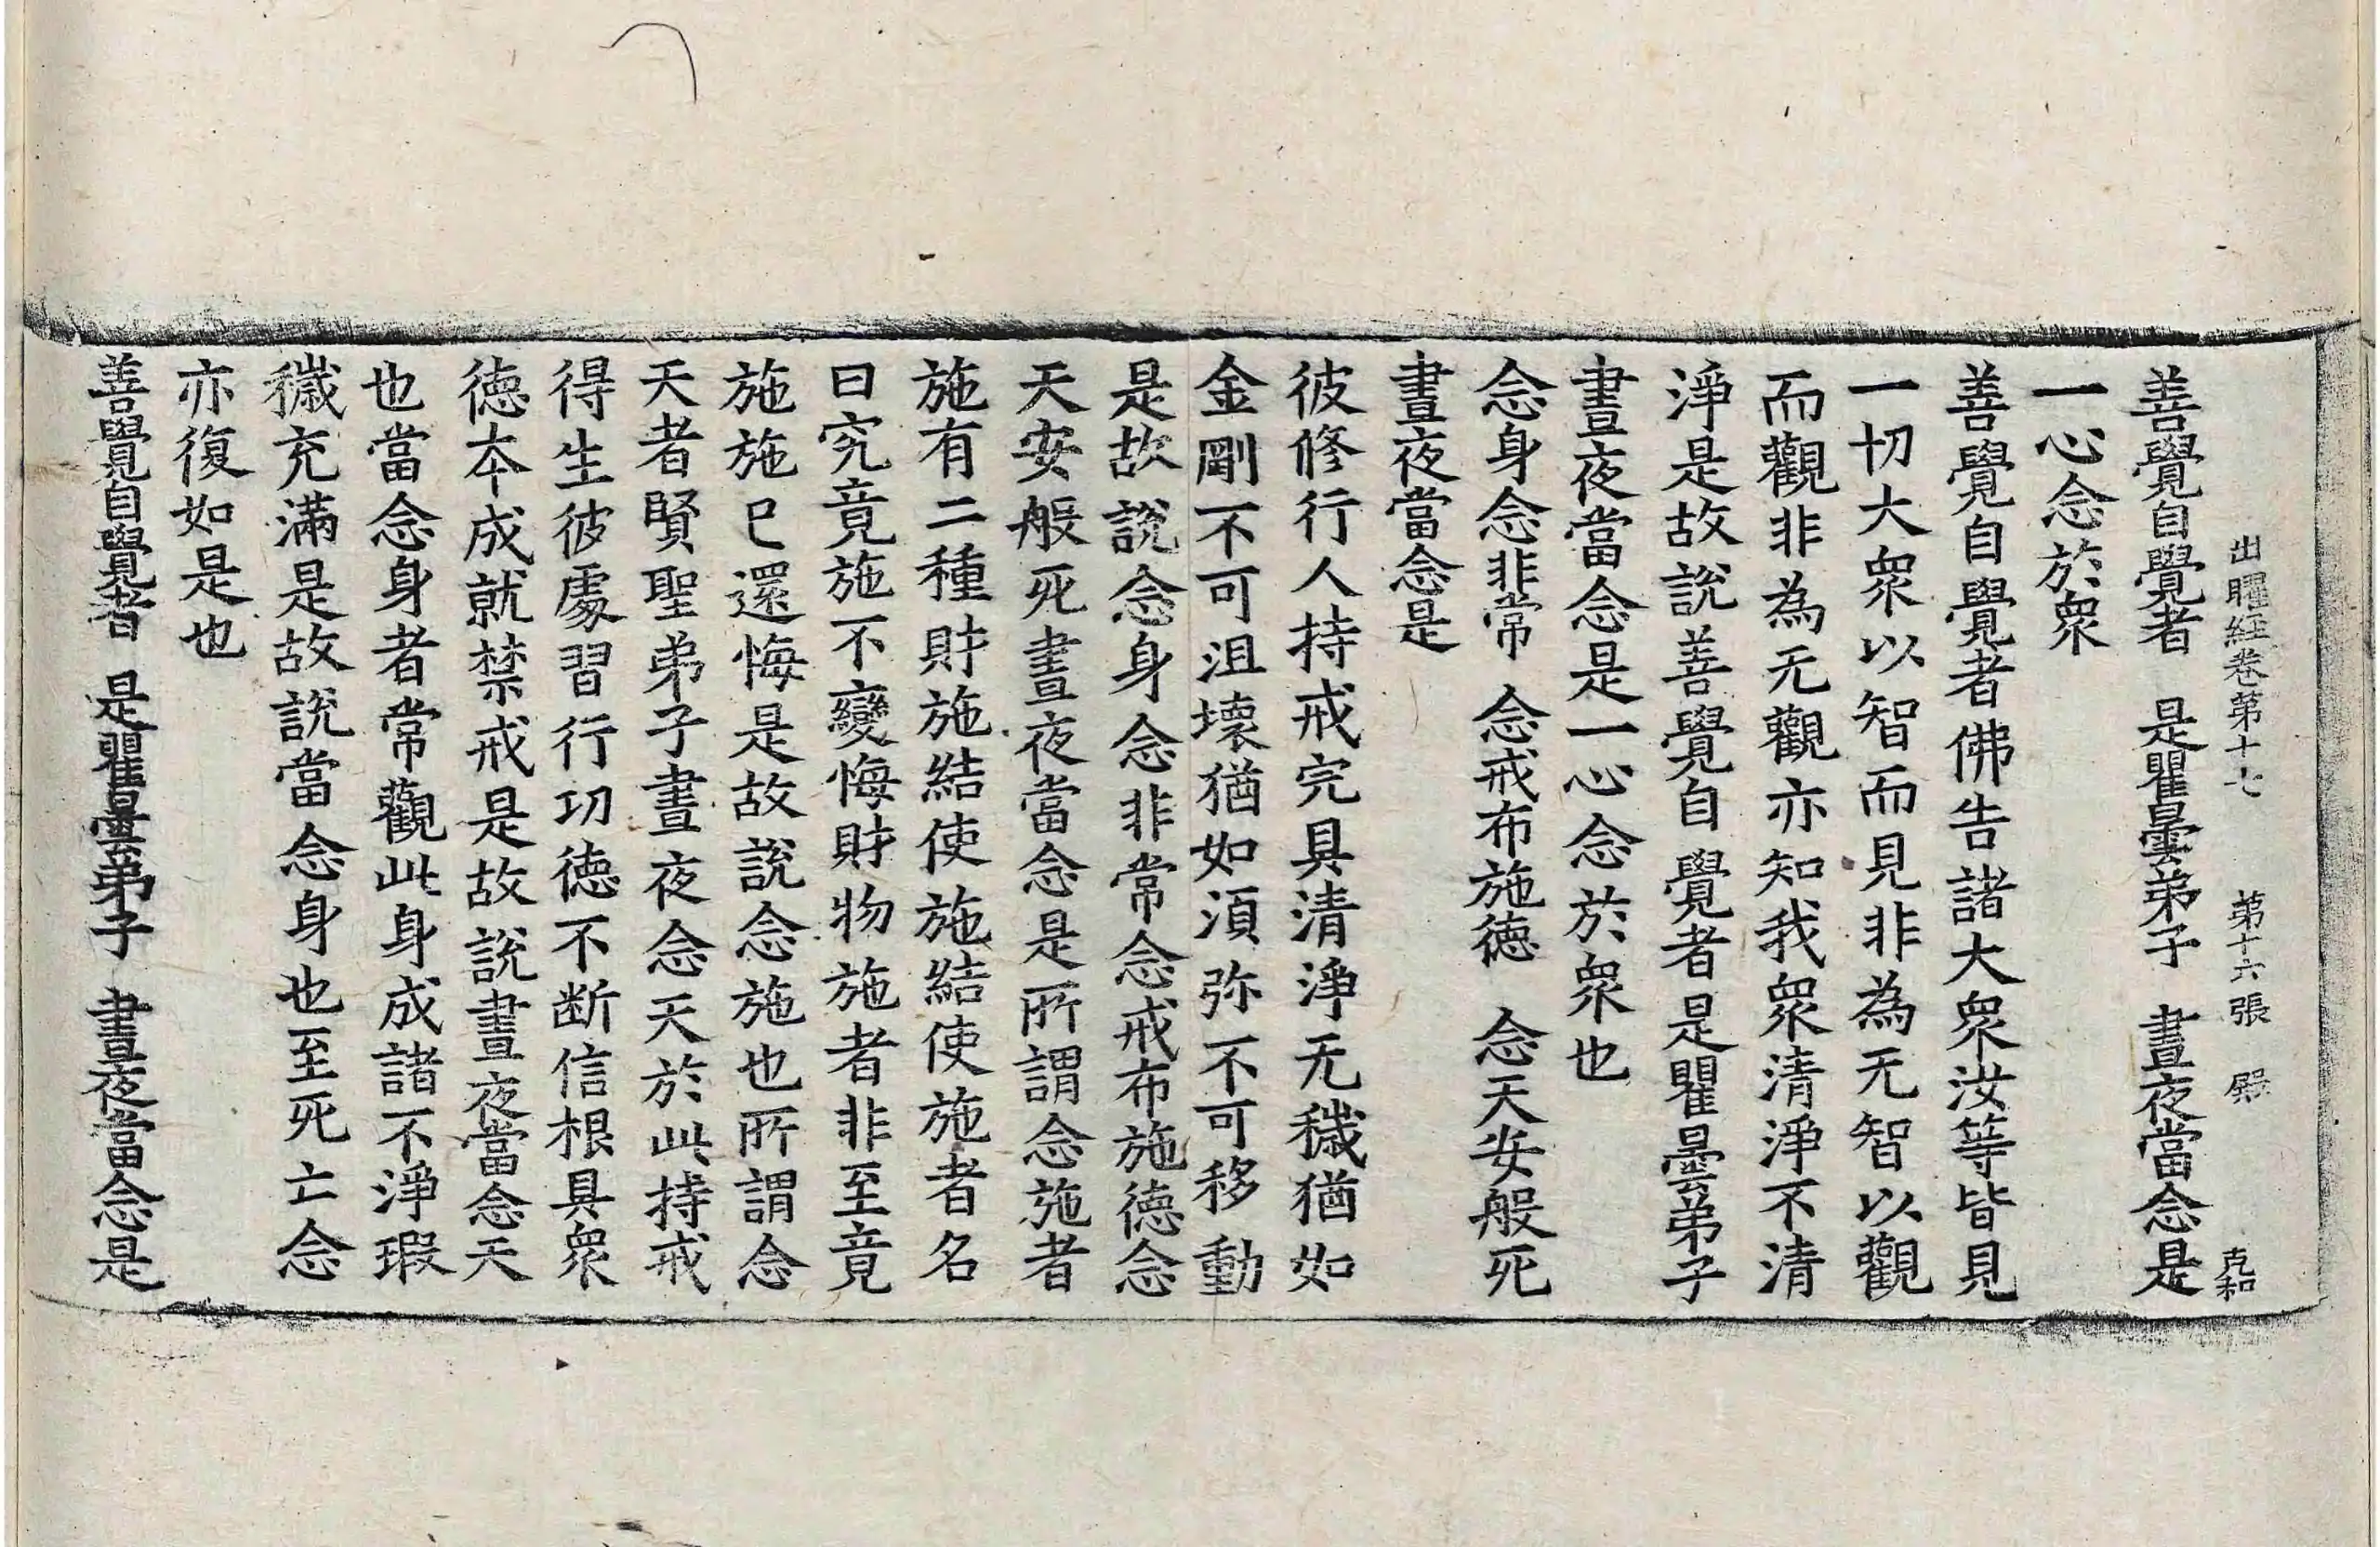 出曜經卷第十七 第十六張 㷉 克和
善覺自覺者 是瞿曇弟子 晝夜當念是
一心念於衆
善覺自覺者佛告諸大衆汝等皆見
一切大衆以智而見非為无智以觀
而觀非為无觀亦知我衆清淨不清
淨是故說善覺自覺者是瞿曇弟子
晝夜當念是一心念於衆也
念身念非常 念戒布施德 念天安般死
晝夜當念是
彼修行人持戒完具清淨无穢猶如
金剛不可沮壞猶如湏弥不可移動
是故說念身念非常念戒布施德念
天安般死晝夜當念是所謂念施者
施有二種財施結使施結使施者名
曰究竟施不變悔財物施者非至竟
施施已還悔是故說念施也所謂念
天者賢聖弟子晝夜念天於此持戒
得生彼處習行功德不断信根具衆
德夲成就禁戒是故說晝夜當念天
也當念身者常觀此身成諸不淨瑕
穢充滿是故說當念身也至死亡念
亦復如是也
善覺自覺者 是瞿曇弟子 晝夜當念是